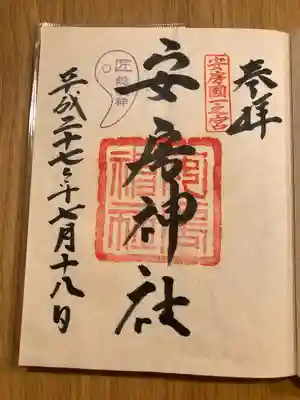 奉拝
安房國一之宮
安房神社
安房神社
平成二十七年七月十八日